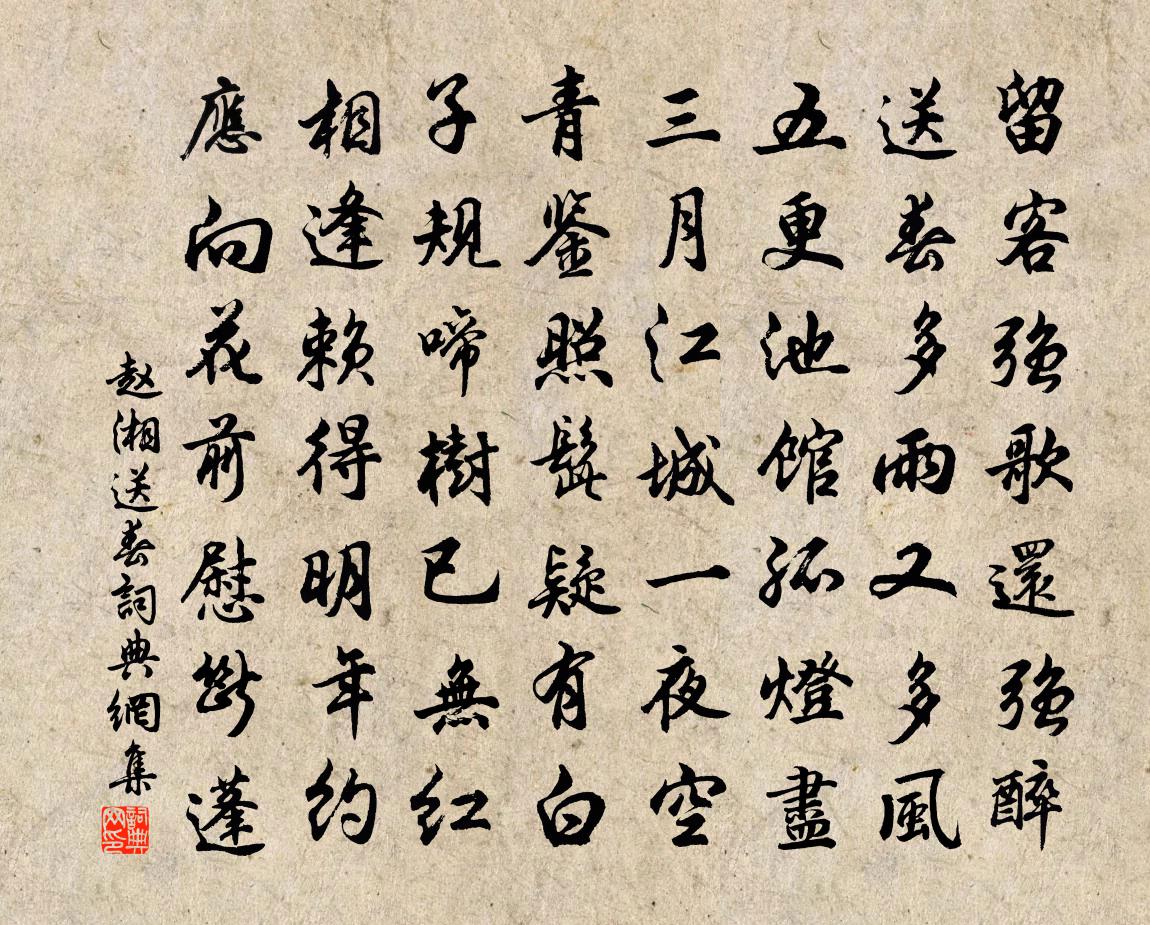 留客強歌還強醉
送春多雨又多風
五更池館孤燈盡
三月江城一夜空
青鉴照髭疑有白
子規啼樹已無紅
相逢赖得明年約
應向花前慰斷蓬
赵湘送春詞典網集
詞典網印